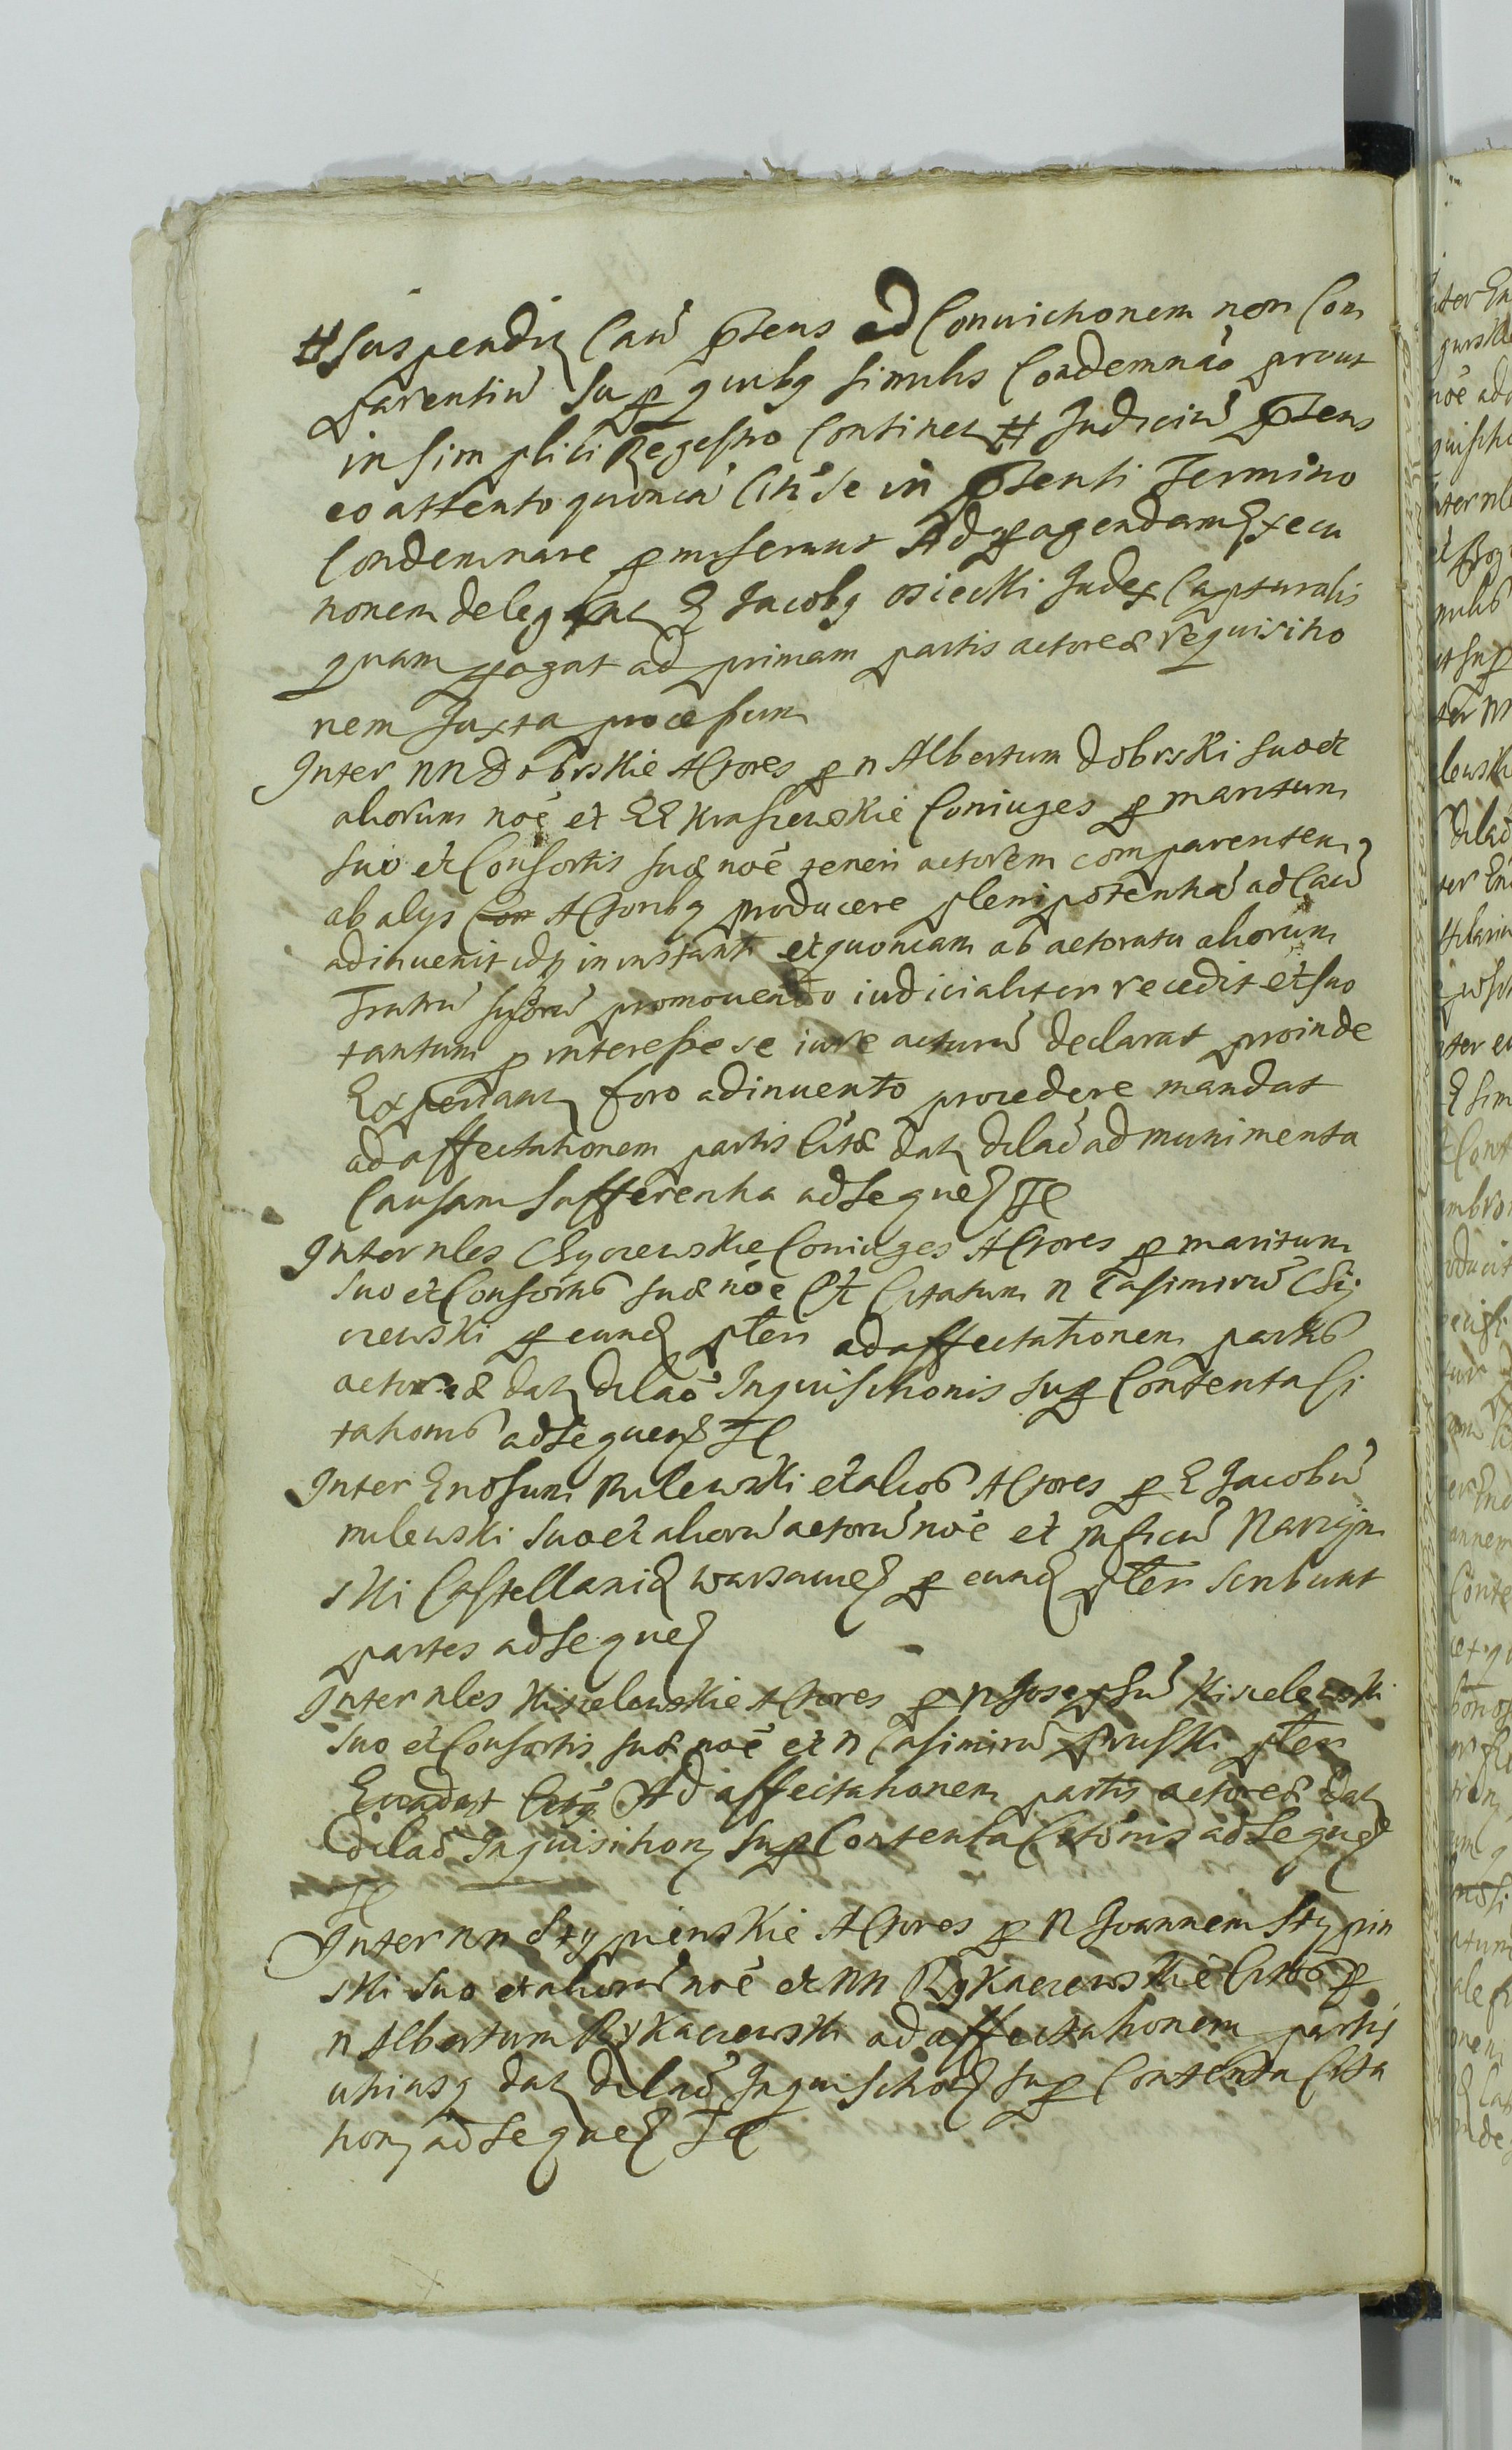 # Suspendit Cau͂ pñtens ad Conuictionem non Com
parentiu͂ Sup quibq simulis Condemnao͂ prout
in simplici Regestro Continet # Judiciu͂ pñtens
eo attento quoniã Citi Se in pñtenti Termino
Condemnare pmiserunt Ad pagendam Execu
tionem delegat G Jacobq osiecki Judex Capturalis
quam pagat ad primam partis actoreæ requisitio
nem Juxta processum
Inter NN Dobrskie Actores p N Albertum Dobrski suo et
aliorum noe͂ et GG Kraszewskie Coniuges p maritum
suo et Consortis suæ noe͂ teneri actorem comparentem
ab alys Con Actoribq producere plenipotentia͂ ad Cau͂
adinuenit idq in instanti et quoniam ab actoratu aliorum
Fratru͂ suoru͂ promouendo iudicialiter recedit et suo
tantum p interesse se iure acturu͂ declarat proinde
Experiant foro adinuento procedere mandat
ad affectationem partis Citæ dat dilao͂ ad munimenta
Causam Sufferentia ad Seque͂ TC
Inter nles Chyczewskie Coniuges Actores p maritum
suo et Consortis suæ noe͂ Et Citatum N Casimiru͂ Chy
czewski p eund pñter ad affectationem partis
actoreæ dat dilao͂ Inquisitionis sup Contenta Ci
tationis ad Sequen TC
Inter Gnosum Milewski et alios Actores p G Jacobu͂
milewski suo et alioru͂ actoru͂ noe͂ et Mficu͂ Narzym
ski Castellanid warsauie p eund pñter scribunt
partes ad Seque
Inter nles Kisielewskie Actores p N Josephu͂ Kisielewski
suo et Consortis suæ noe͂ et N Casimiru͂ Pruski pñter
Euadat Citq Ad affectationem partis actoreæ dat
dilao͂ Inquisition sup Contenta Citonis ad Seque
TC
Inter NN Stypienskie Actores p N Joannem Stypin
ski suo et alioru͂ noe͂ et NN Rykaczewskie Citos p
N Albertum Rykaczewski ad affectationem partis
utriusq dat dilao͂ Inquisitiod sup Contenta Cita
tion ad Seque TC